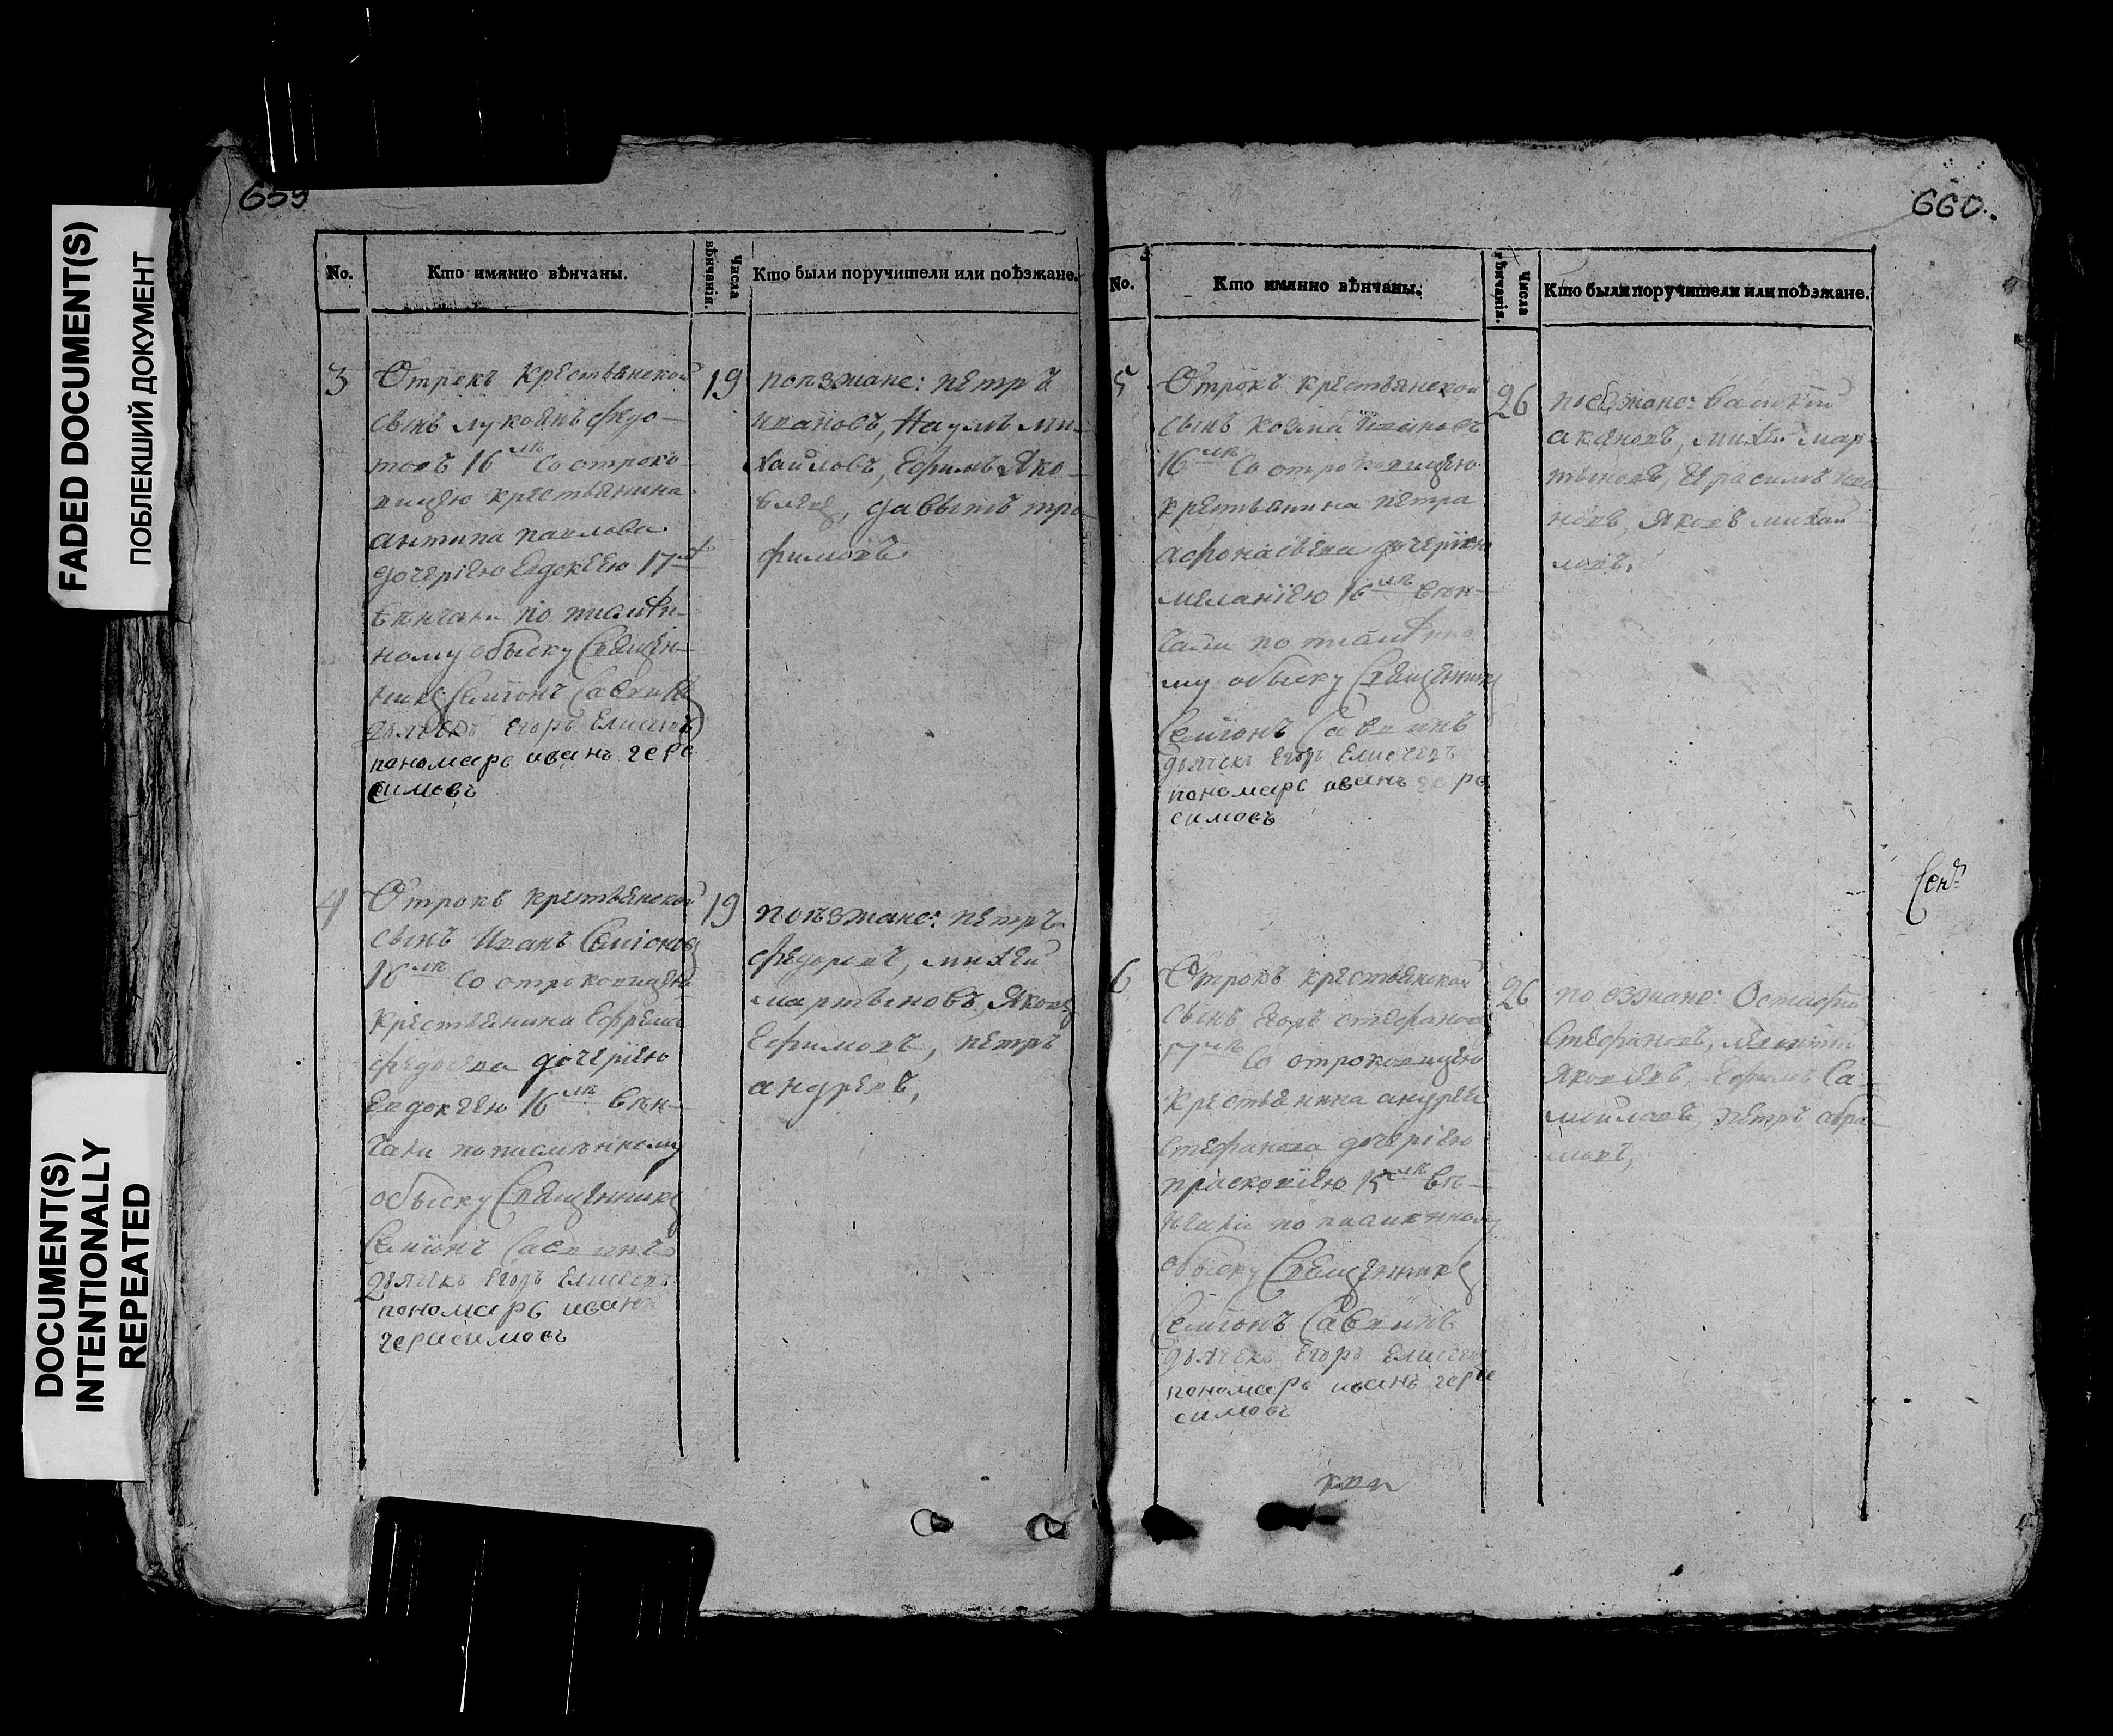 FADED DOCUMENT(S)
ПОБЛЕКШИЙ ДОКУМЕНТ
DOCUMENT(S)
INTENTIONALLY
REPEATED
659
No.
Кто имянно вѣнчаны.
Числа вѣнчанія.
Кто были поручители или поѣзжане.
3
Отрокъ крестьянской
сынъ лукоянъ федо-
товъ 16 лѣ Со отроко-
вицею крестьянина
антипа павлова
дочерiею Евдокѣею 17
вѣнчаны по писмѣн-
ному обыску Священ-
никъ Семiонъ Саввинъ
дьячекъ Егоръ Елисеевъ
пономарь иванъ гера
симовъ
19
поѣзжане: пѣтръ
ивановъ, Наумъ ми-
хайловъ, Ефимъ Яко-
влевъ, давыдъ тро-
фимовъ
4
Отрокъ крестьянской
сынъ Иванъ Семiоновъ
16 лѣ Со отроковицею
крестьянина Ефрема
федосѣва дочерiею
Евдокѣею 16 лѣ вѣн-
чаны по писмѣнному
обыску Священникъ
Семiонъ Саввинъ
дьячекъ Егоръ Елисеевъ
пономарь иванъ
герасимовъ
19
поѣзжане: пѣтръ
федоровъ, михѣй
мартыновъ, Яковъ
Ефимовъ, пѣтръ
андрѣвъ,
660.
No.
Кто имянно вѣнчаны.
Числа вѣнчанія.
Кто были поручители или поѣзжане.
5
Отрокъ крестьянской
сынъ козма Ивановъ
16 лѣ Со отроковицею
крестьянина пѣтра
афонасьева дочерiею
меланiею 16 лѣ вѣн-
чаны по писмѣнно
му обыску Священникъ
Семiонъ Саввинъ
дьячекъ Егоръ Елисеевъ
пономарь иванъ гера
симовъ
26
поѣзжане:
михѣй мар-
тыновъ, Ива
новъ, Яковъ михай-
ловъ,
6
Отрокъ крестьянской
сынъ Егоръ стефановъ
17 лѣ Со отроковицею
крестьянина андрѣя
Стефанова дочерiею
прасковiею 15 лѣ вѣ-
нчаны по писменному
обыску Священникъ
Семiонъ Саввинъ
дьячекъ Егоръ Елисеевъ
пономарь иванъ гера
симовъ
26
поѣзжане: Остафiй
Стефановъ,
Яковлевъ, Ефимъ Са-
мойловъ, пѣтръ абра-
мовъ,
Сен